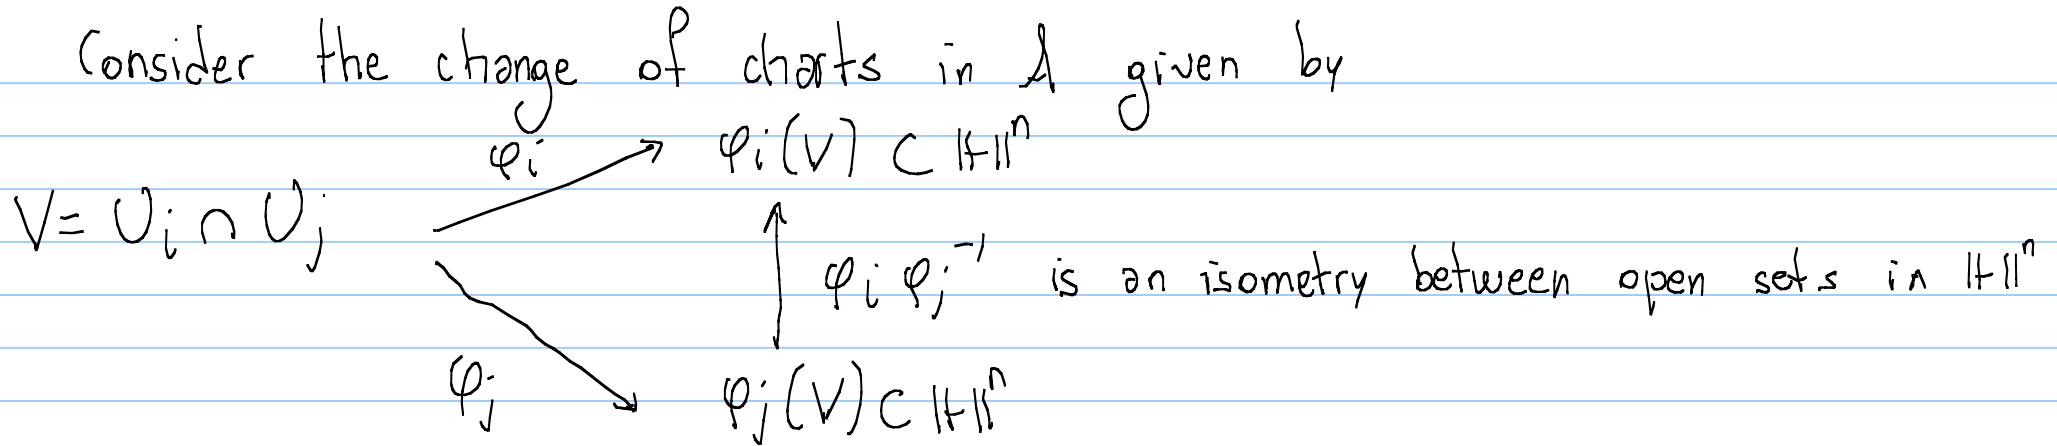 Consider the change of charts in A given by
φi φi(V) ⊂ ℍⁿ
V = Ui ∩ Uj
φi φj⁻¹ is an isometry between open sets in ℍⁿ
φj φj(V) ⊂ ℍⁿ